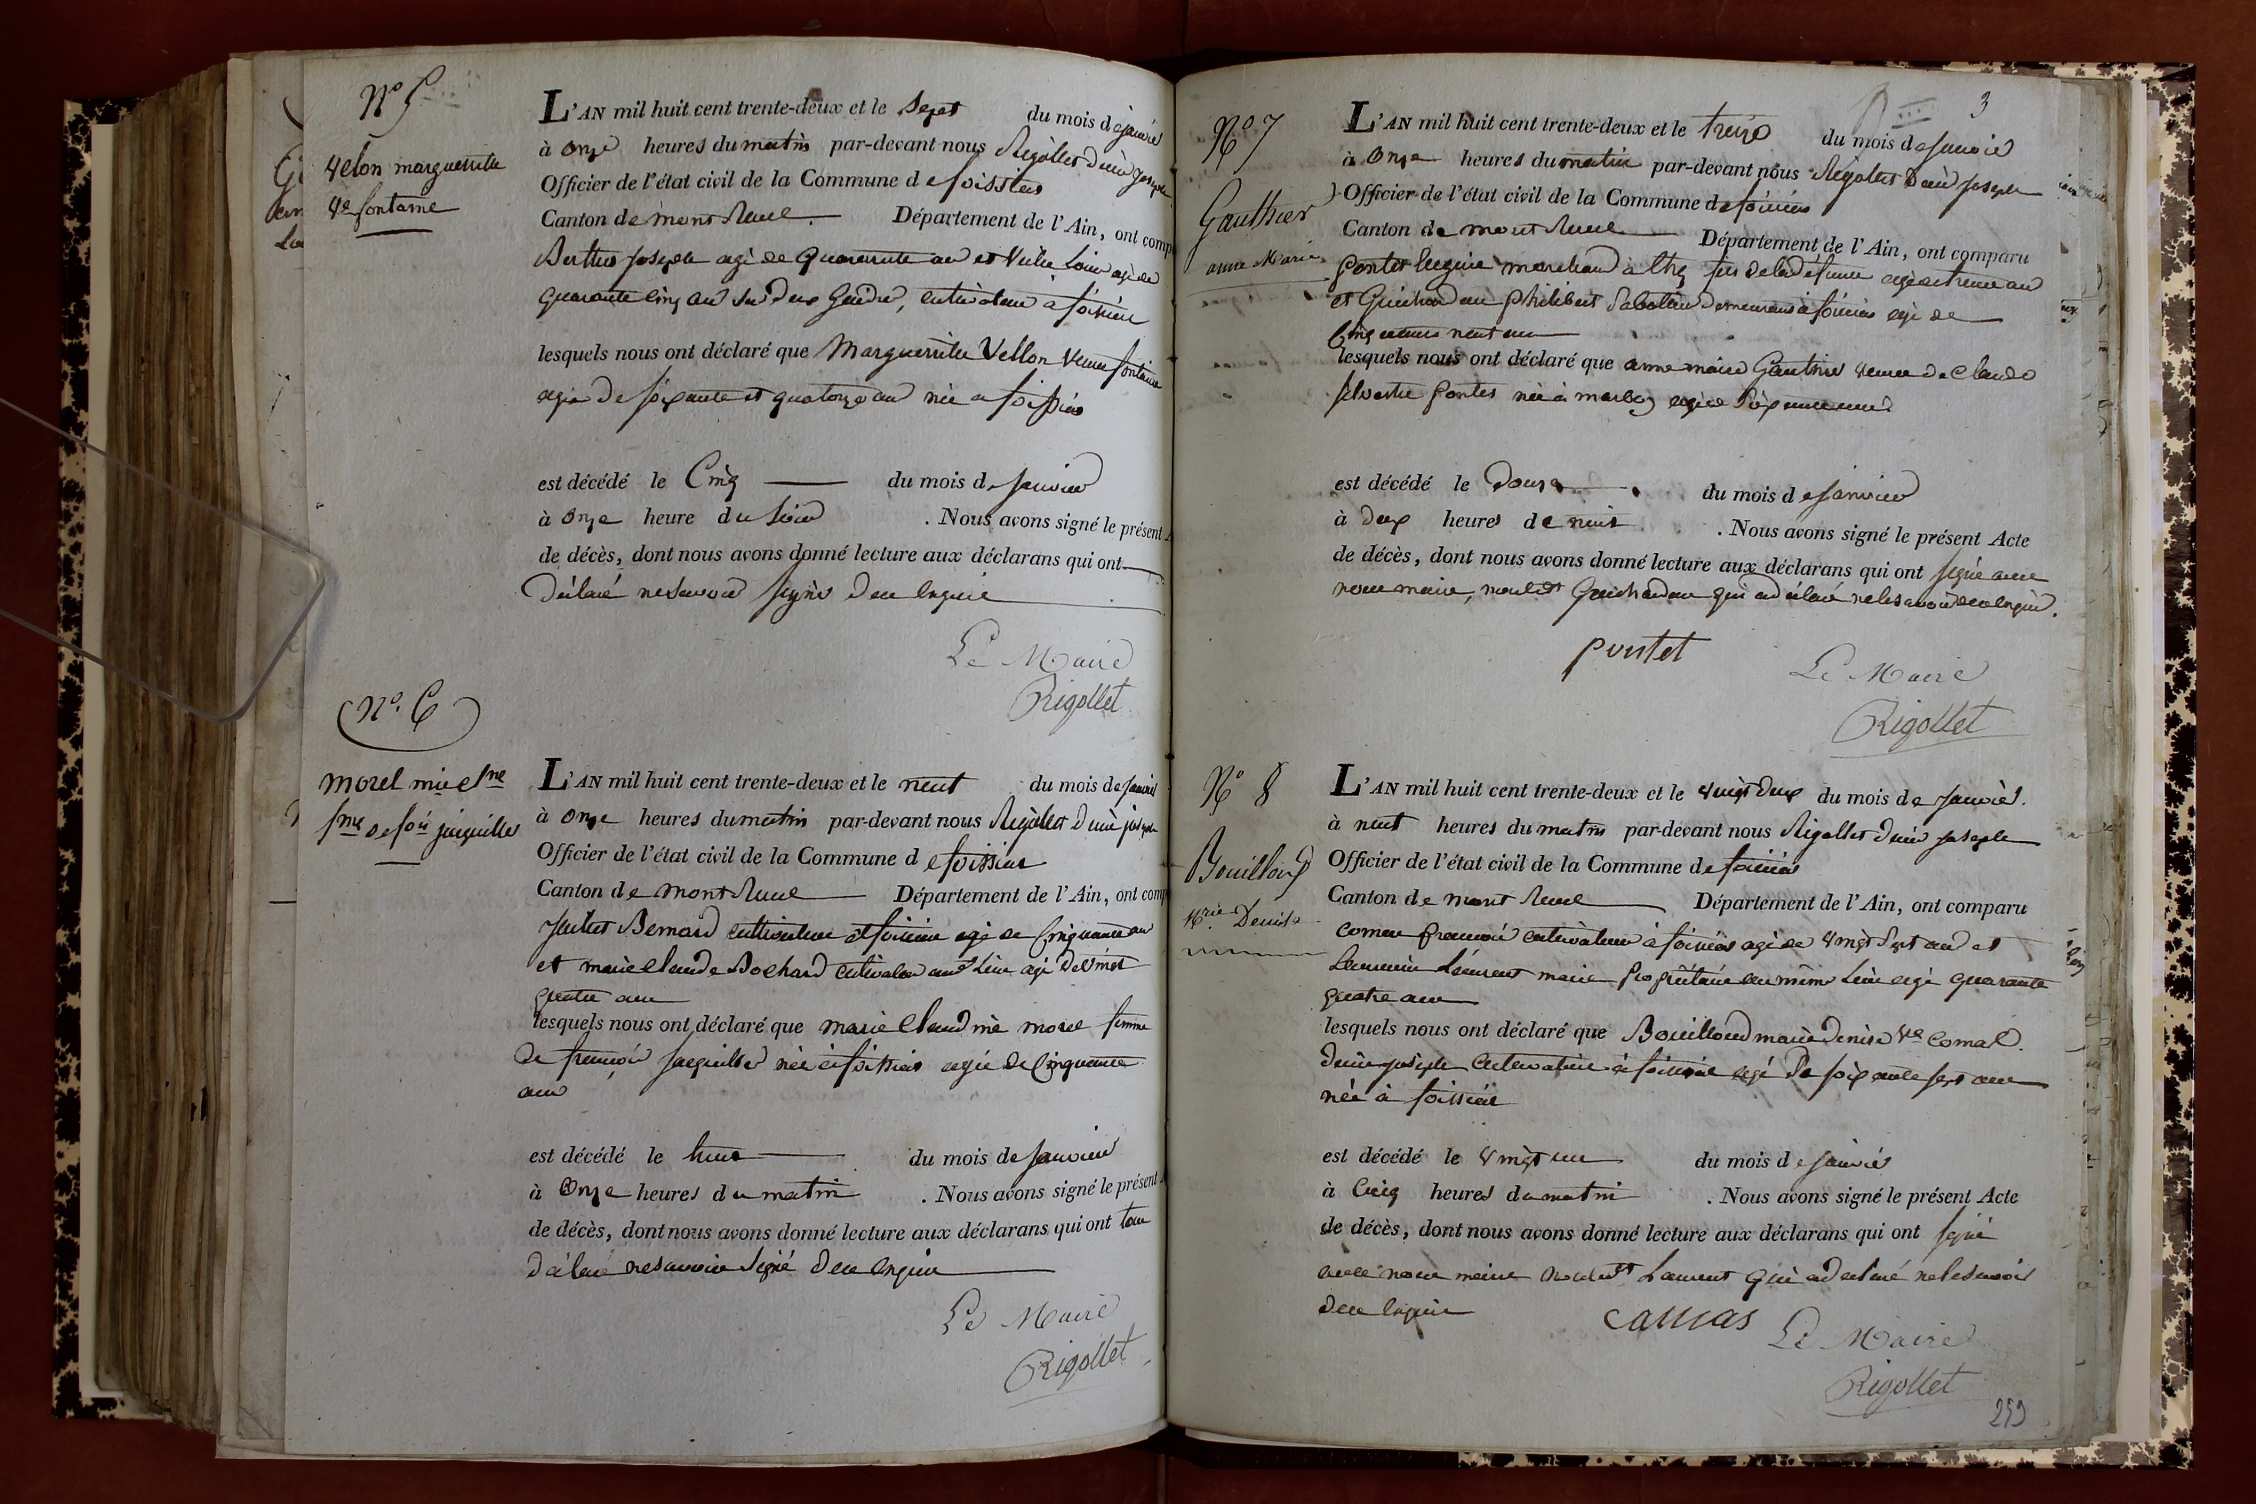 N° 5
Velon marguerite
Ve fontaine
L'AN mil huit cent trente-deux et le sept du mois de janvier
à onze heures du matin par-devant nous Rigollet Denis joseph
Officier de l'état civil de la Commune de foissiat
Canton de montrevel Département de l'Ain, ont comp
joseph agé de quarante ans et agé de
quarante cinq ans cultivateur à foissiat
lesquels nous ont déclaré que Margueritte Vellon veuve fontaine
agée de soixante et quatorze ans née a foissiat
est décédé le Cinq du mois de janvier
à onze heure du soir . Nous avons signé le présent A
de décès, dont nous avons donné lecture aux déclarans qui ont
déclaré ne savoir signer de ce enquis
Le Maire
Rigollet
N°. 6
morel mie clne
fme de fois jaquillet
L'AN mil huit cent trente-deux et le neuf du mois de janvier
à onze heures du matin par-devant nous Rigollet Denis joseph
Officier de l'état civil de la Commune de foissiat
Canton de montrevel Département de l'Ain, ont comp
Bernard cultivateur à foissiat agé de cinquante ans
et marie claude Bochard cultivateur au d lieu agé de vingt
quatre ans
lesquels nous ont déclaré que marie claudine morel femme
de françois jaequillet née à foissiat agée de cinquante
ans
est décédé le huit du mois de janvier
à onze heures du matin . Nous avons signé le présent A
de décès, dont nous avons donné lecture aux déclarans qui ont tous
déclaré ne savoir signé de ce enquis
Le Maire
Rigollet
3
N° 7
Gauthier
anne Marie
L'AN mil huit cent trente-deux et le treize du mois de janvier
à onze heures du matin par-devant nous Rigollet Denis joseph
Officier de l'état civil de la Commune de foissiat
Canton de montrevel Département de l'Ain, ont comparu
marchand à fils de la défunte agé de trente ans
et philibert demeurant à foissiat agé de
cinquante neuf ans
lesquels nous ont déclaré que anne marie Gauthier veuve de claude
silvestre pontet née à marboz agée de soixante
est décédé le douze du mois de janvier
à deux heures de nuit . Nous avons signé le présent Acte
de décès, dont nous avons donné lecture aux déclarans qui ont signé avec
nous maire, qui a déclaré ne le savoir de ce enquis.
pontet
Le Maire
Rigollet
N° 8
Bouilloud
Mrie Denise
L'AN mil huit cent trente-deux et le vingt deux du mois de janvier.
à neuf heures du matin par-devant nous Rigollet Denis joseph
Officier de l'état civil de la Commune de foissiat
Canton de montrevel Département de l'Ain, ont comparu
françois cultivateur à foissiat agé de vingt sept ans et
Laurent marie propriétaire au même lieu agé quarante
quatre ans
lesquels nous ont déclaré que Bouilloud marie denise Ve
denis joseph cultivatrice à foissiat agé de soixante sept ans
née à foissiat
est décédé le vingt un du mois de janvier
à cinq heures du matin . Nous avons signé le présent Acte
de décès, dont nous avons donné lecture aux déclarans qui ont signé
avec nous maire Laurent qui a déclaré ne le savoir
de ce enquis
Le Maire
Rigollet